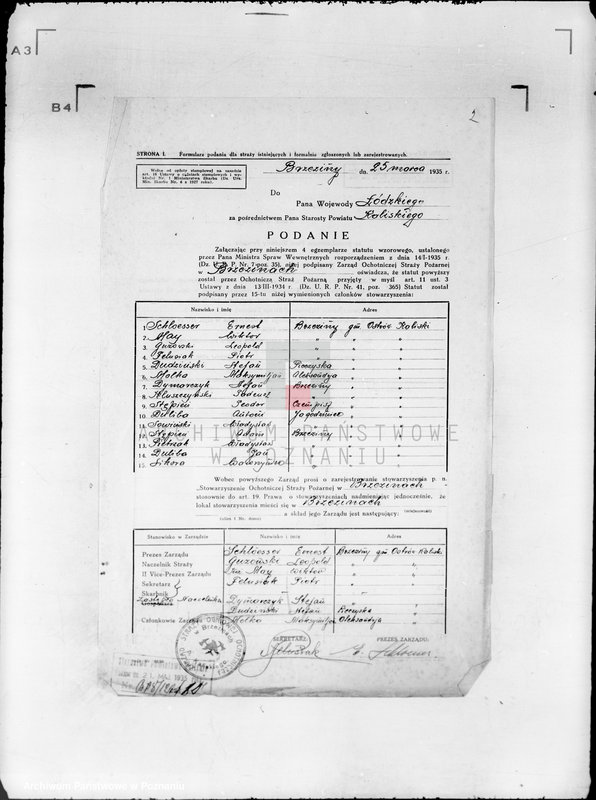 A3
B4
2
STRONA I. Formularz podania dla straży istniejących i formalnie zgłoszonych lub zarejestrowanych.
Wolne od opłaty stemplowej na zasadzie
Brzeziny dn. 25 marca 1935 r.
Do
Pana Wojewody Łódzkiego
za pośrednictwem Pana Starosty Powiatu Kaliskiego
PODANIE
Załączając przy niniejszem 4 egzemplarze statutu wzorowego, ustalonego
przez Pana Ministra Spraw Wewnętrznych rozporządzeniem z dnia 14/I-1935 r.
(Dz. U. R. P. Nr. 7 poz. 35), niżej podpisany Zarząd Ochotniczej Straży Pożarnej
w Brzezinach oświadcza, że statut powyższy
został przez Ochotniczą Straż Pożarną przyjęty w myśl art. 11 ust. 3
Ustawy z dnia 13/III-1934 r. (Dz. U. R. P. Nr. 41, poz. 365) Statut został
podpisany przez 15-tu niżej wymienionych członków stowarzyszenia:
Nazwisko i imię Adres
1. Schloesser Ernest Brzeziny gm Ostrów Kaliski
2. May Wiktor " " "
3. Guzowski Leopold " " "
4. Pelusiak Piotr " " "
5. Dudziński Stefan Pieczyska " "
6. Molka Maksymiljan Aleksandrja " "
7. Dymarczyk Stefan Brzeziny " "
8. Kluszczyński Tadeusz " " "
9. Stępień Teodor Czempisz " "
10. Duliba Antoni Jagodziniec " "
11. Sowiński Władysław
12. Stępień Adam Brzeziny
13. Pietrzak Władysław
14. Duliba Jan
15. Sikora
Wobec powyższego Zarząd prosi o zarejestrowanie stowarzyszenia p. n.
„Stowarzyszenie Ochotniczej Straży Pożarnej w Brzezinach"
stosownie do art. 19. Prawa o stowarzyszeniach nadmieniając jednocześnie, że
lokal stowarzyszenia mieści się w Brzezinach
(miejscowość)
(ulica i Nr. domu) a skład jego Zarządu jest następujący:
Stanowisko w Zarządzie Nazwisko i imię Adres
Prezes Zarządu Schloesser Ernest Brzeziny gm Ostrów Kaliski
Naczelnik Straży Guzowski Leopold " "
II Vice-Prezes Zarządu May Wiktor " "
Sekretarz Pelusiak Piotr " "
Skarbnik
Zastępca Naczelnika Dymarczyk Stefan " "
Gospodarz Dudziński Stefan Pieczyska "
Członkowie Zarządu Molka Maksymiljan Aleksandrja "
SEKRETARZ: PREZES ZARZĄDU:
ARCHIWUM PAŃSTWOWE
W POZNANIU
Archiwum Państwowe w Poznaniu